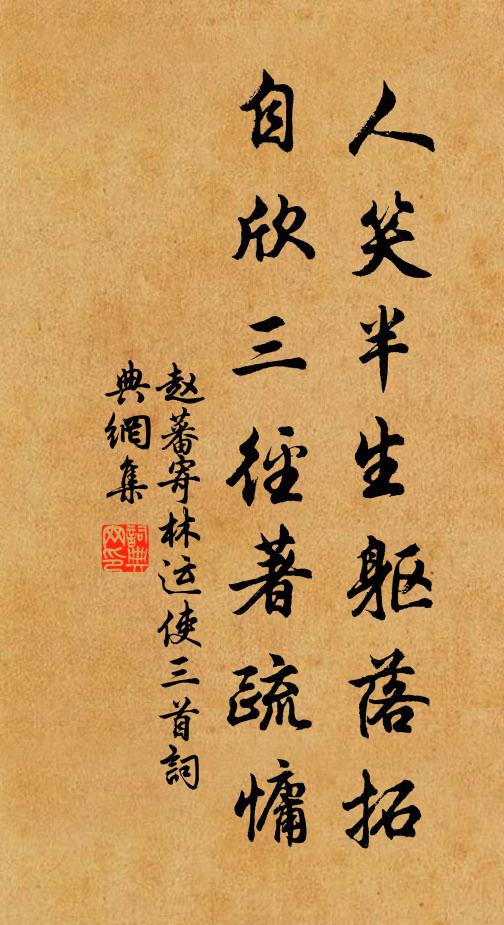 人笑半生躯落拓
自欣三径著疏慵
赵蕃寄林运使三首詞
典網集
詞典网印